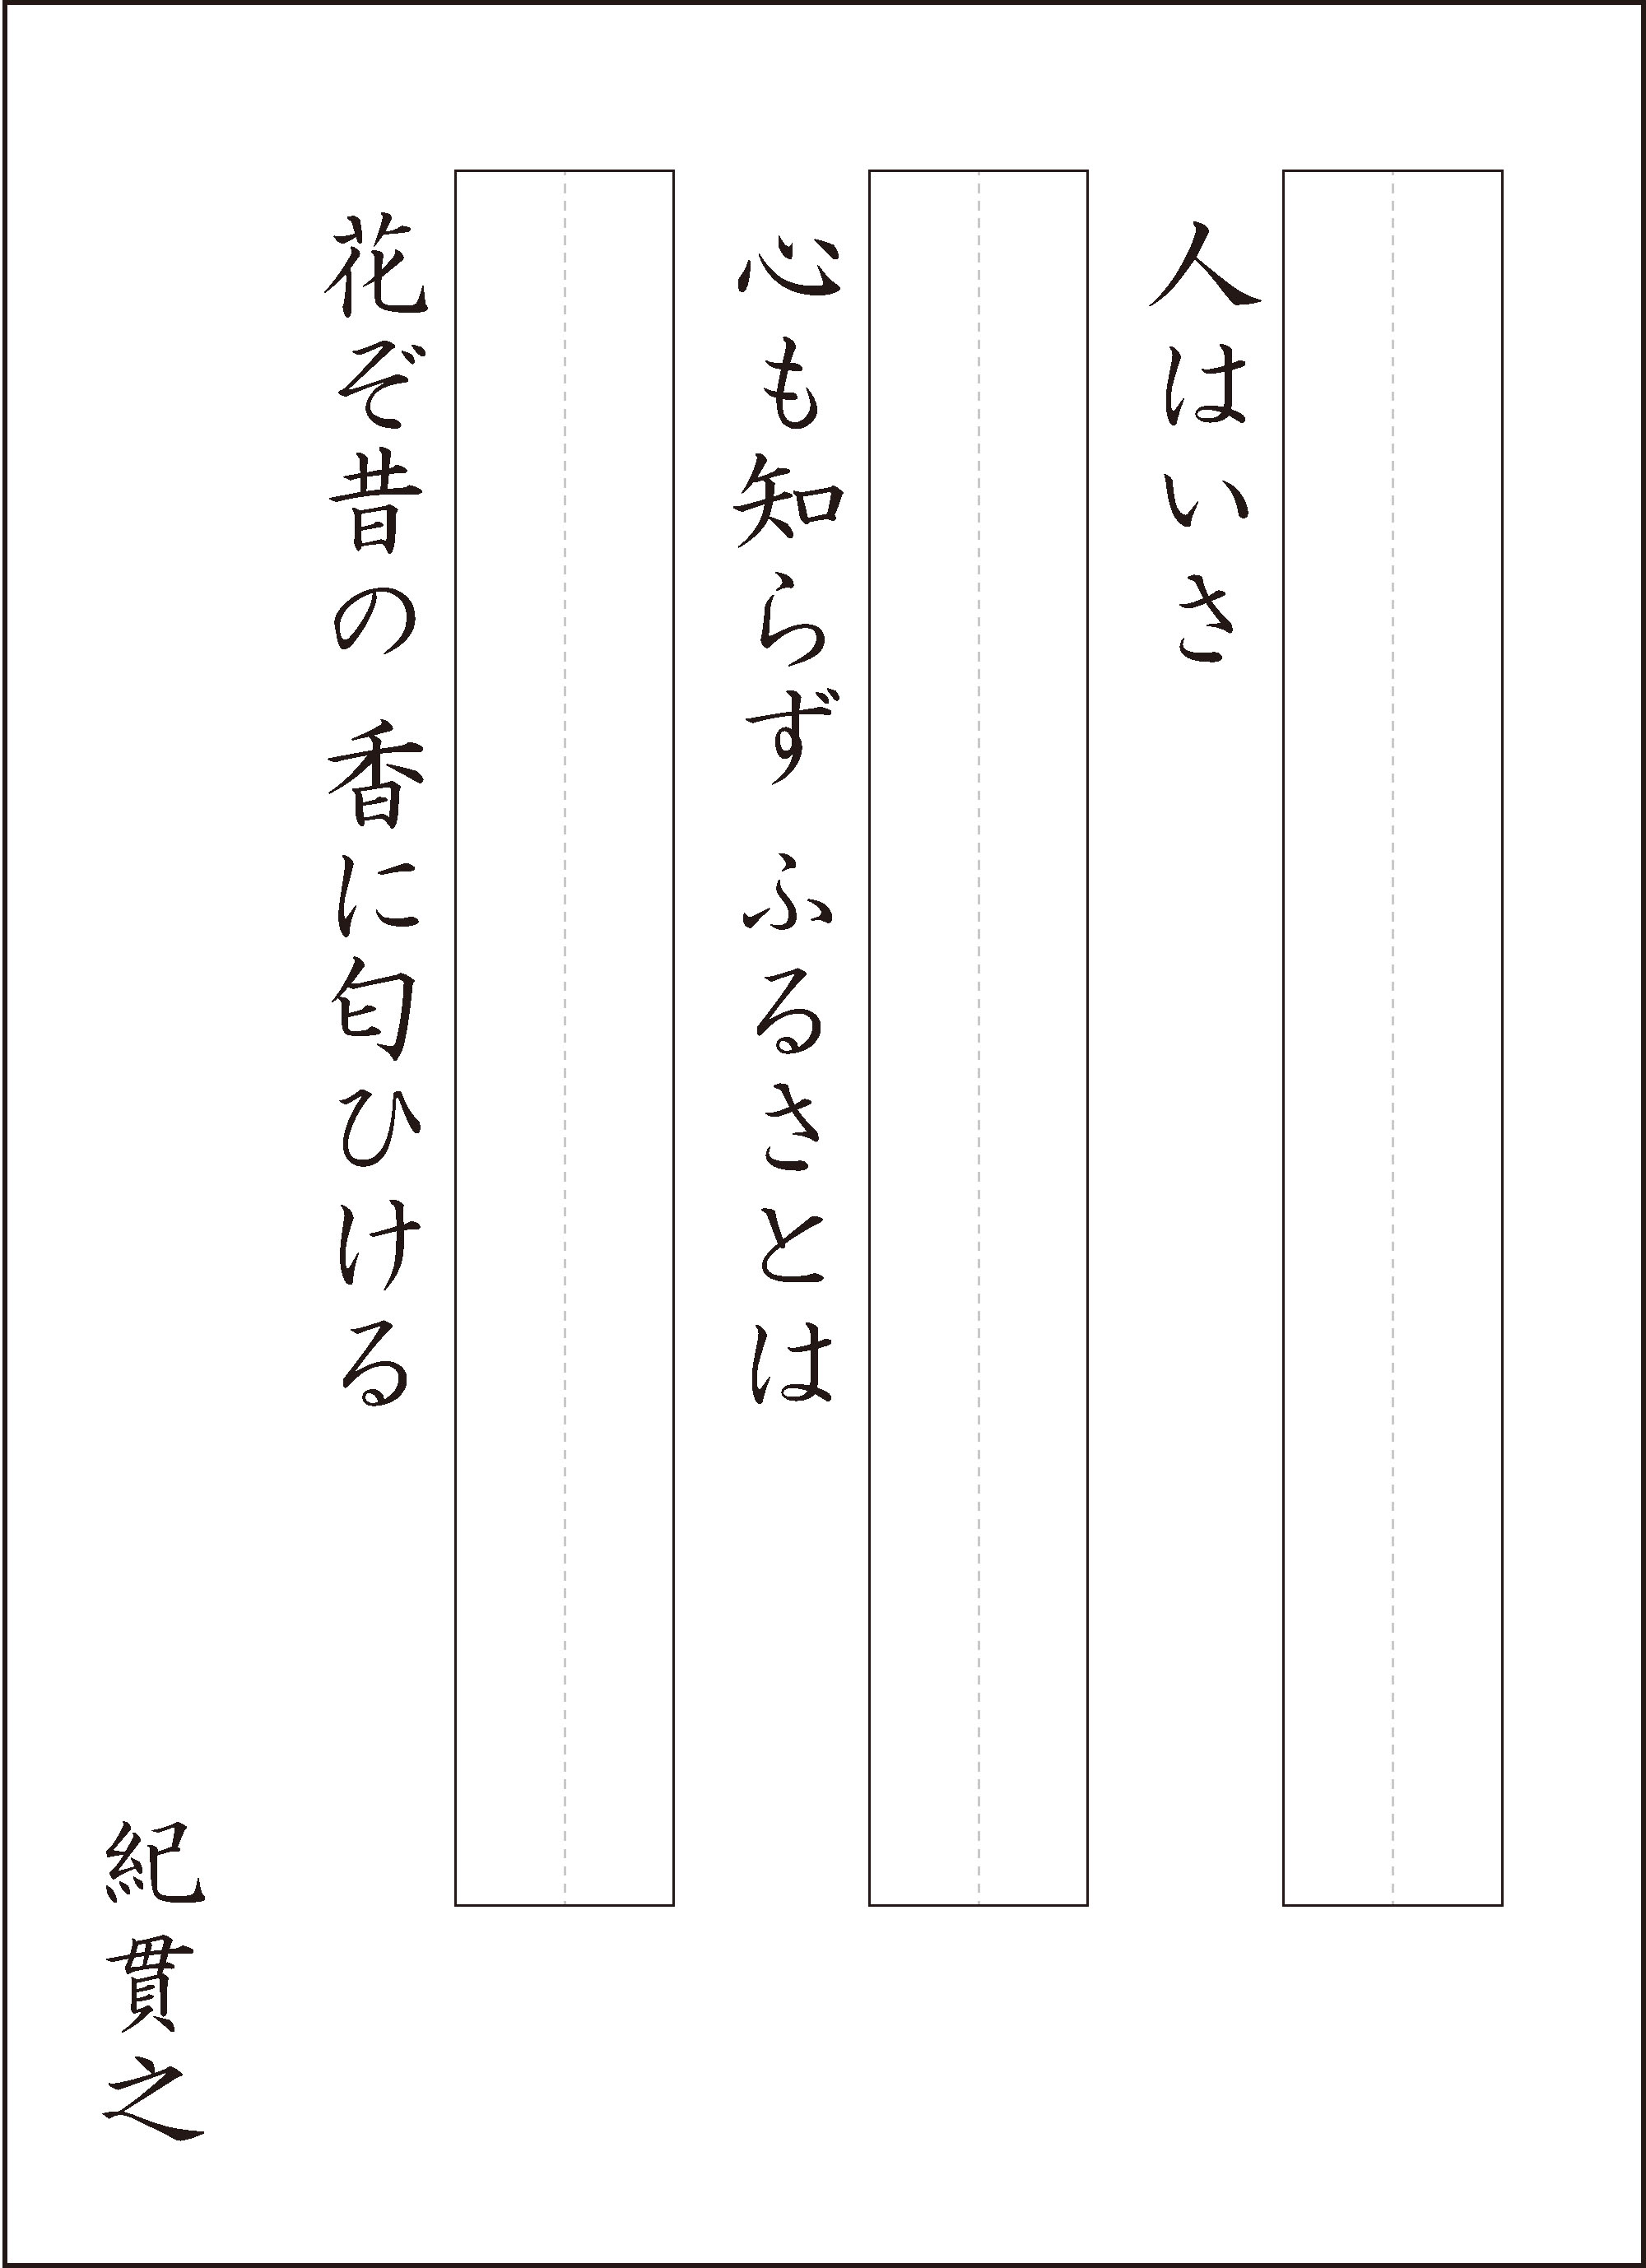 人はいさ
心も知らず ふるさとは
花ぞ昔の 香に匂ひける
紀貫之